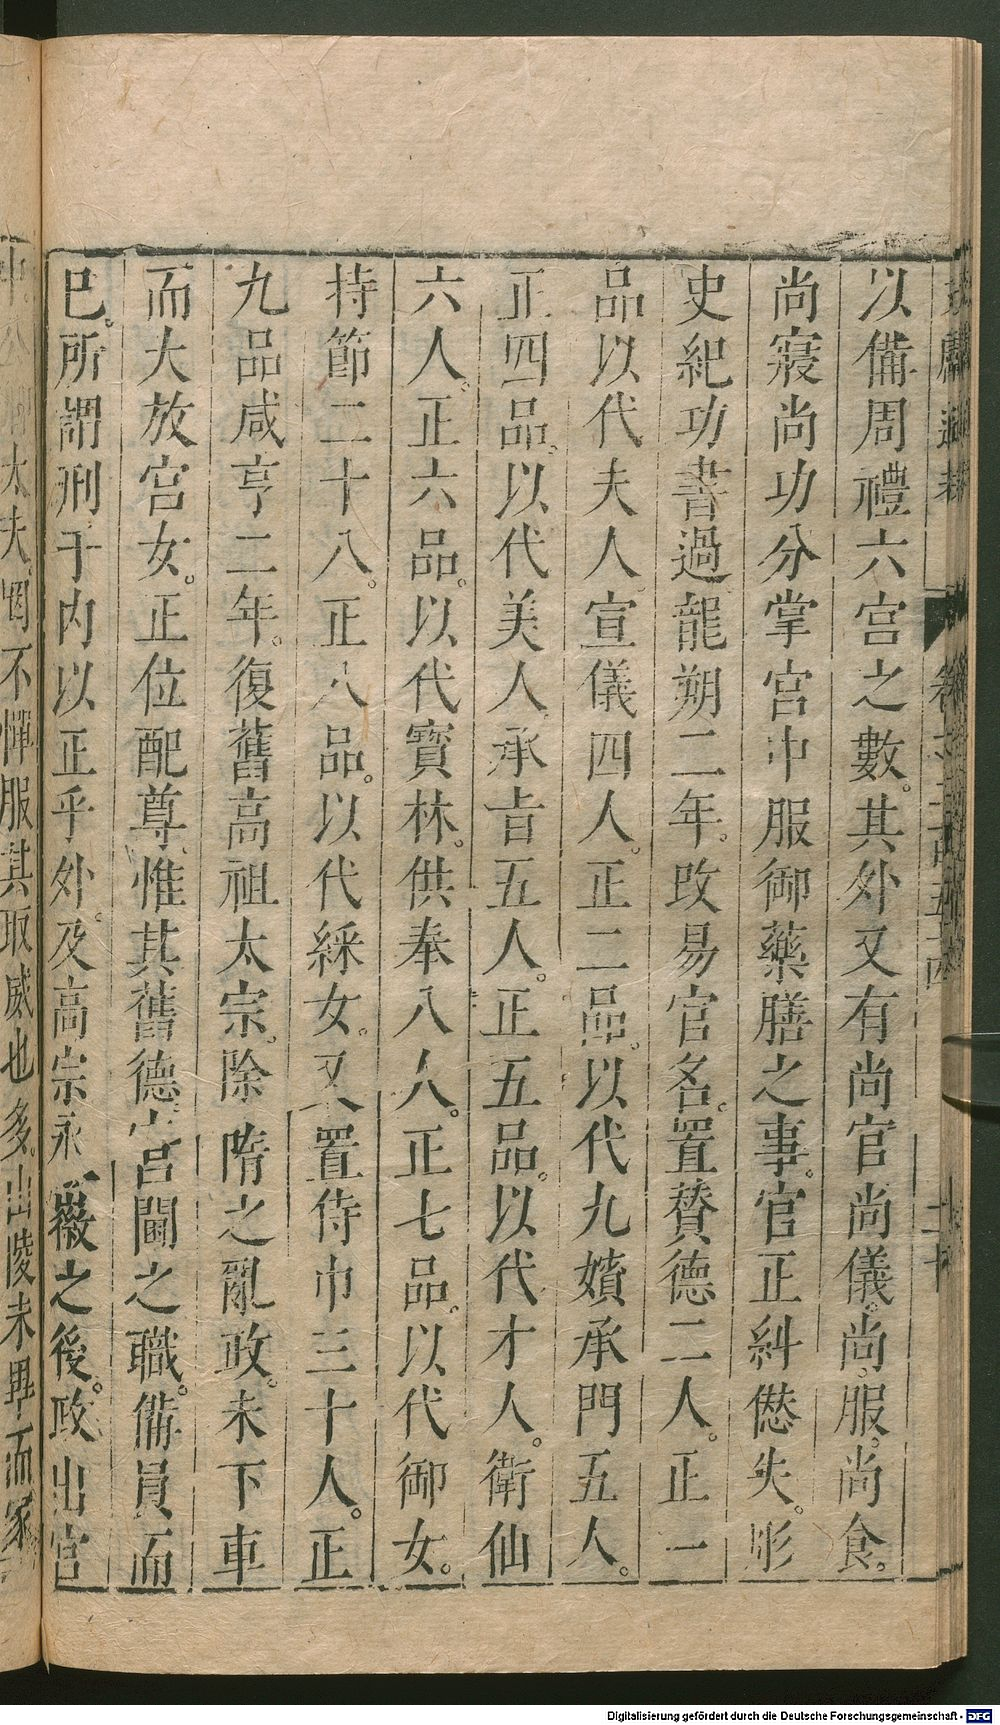 以備周禮六宮之數。其外又有尚官尚儀。尚服。尚食。
尚寢尚功分掌宮中服御藥膳之事。官正糾愆失。彤
史紀功書過龍朔二年。改易官名。置贊德二人。正一
品以代夫人宣儀四人。正二品。以代九嬪承門五人。
正四品。以代美人承旨五人。正五品。以代才人。衛仙
六人。正六品。以代寶林。供奉八人。正七品。以代御女。
持節二十八。正八品。以代綵女。又置侍巾三十人。正
九品咸亨二年。復舊高祖太宗。除隋之亂政。未下車
而大放宮女。正位配尊。惟其舊德宮闈之職。備員而
巳。所謂刑于內以正乎外。及高宗永徽之後。政出宮
大夫。不憚服其取威也多。出陵未畢而冢
Digitalisierung gefördert durch die Deutsche Forschungsgemeinschaft - DFG